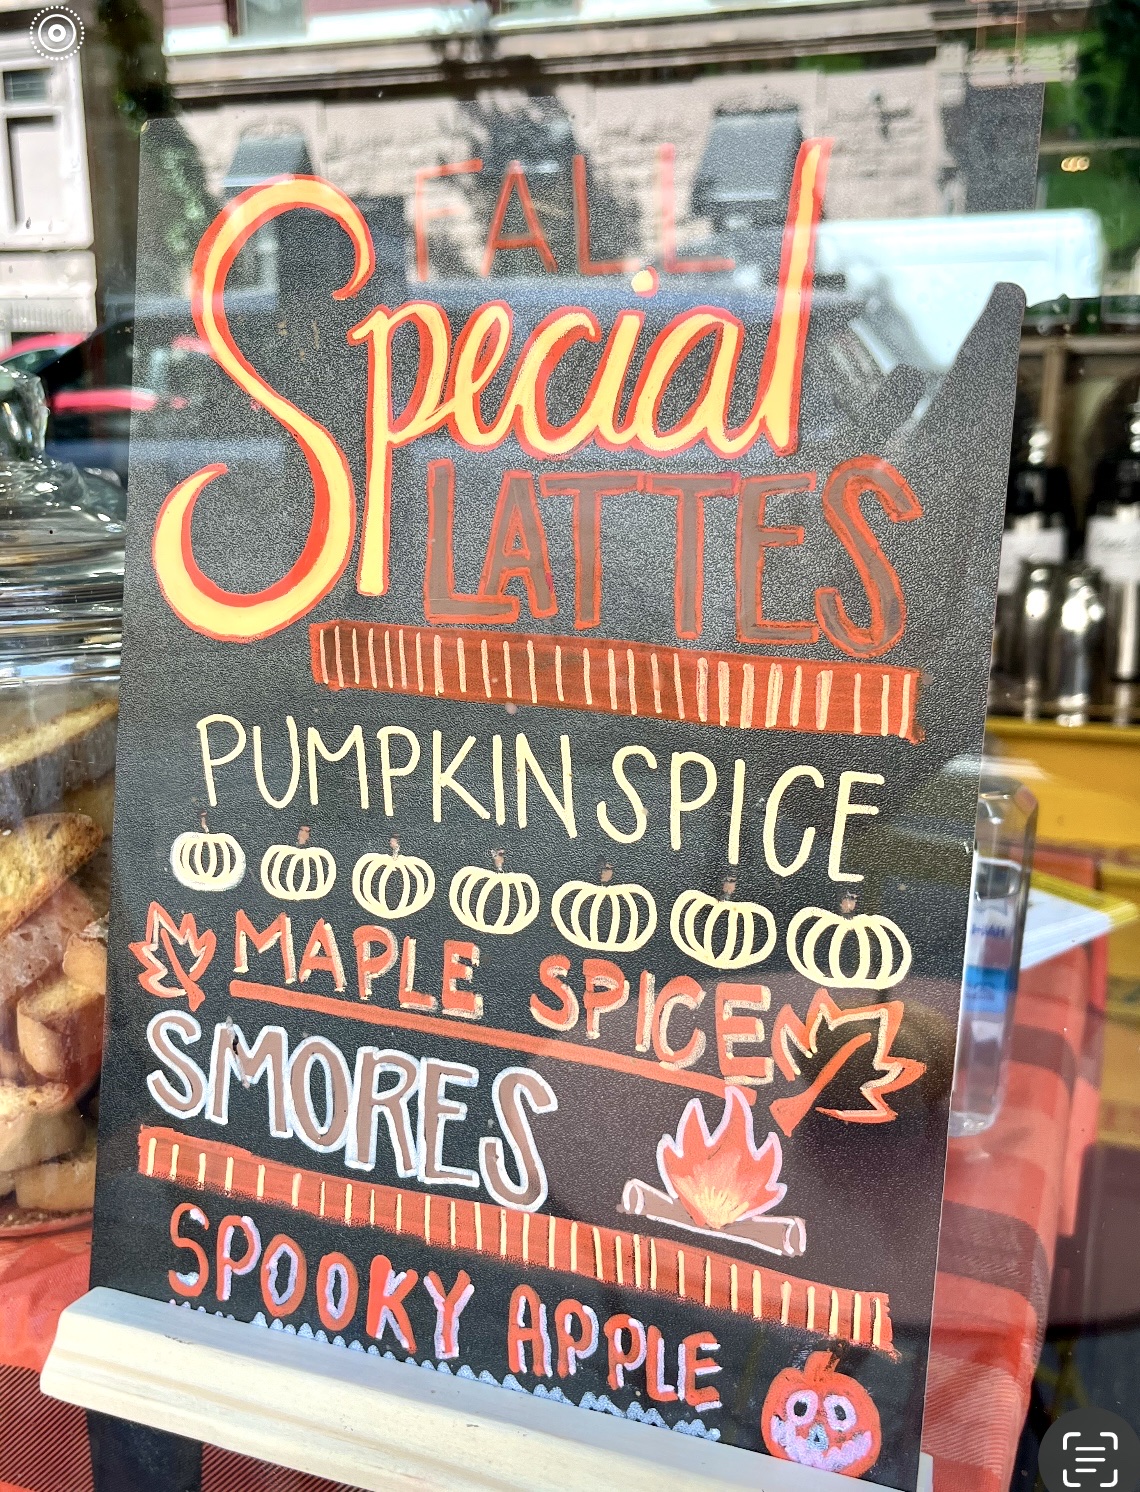 FALL
Special
LATTES
PUMPKIN SPICE
MAPLE SPICE
SMORES
SPOOKY APPLE